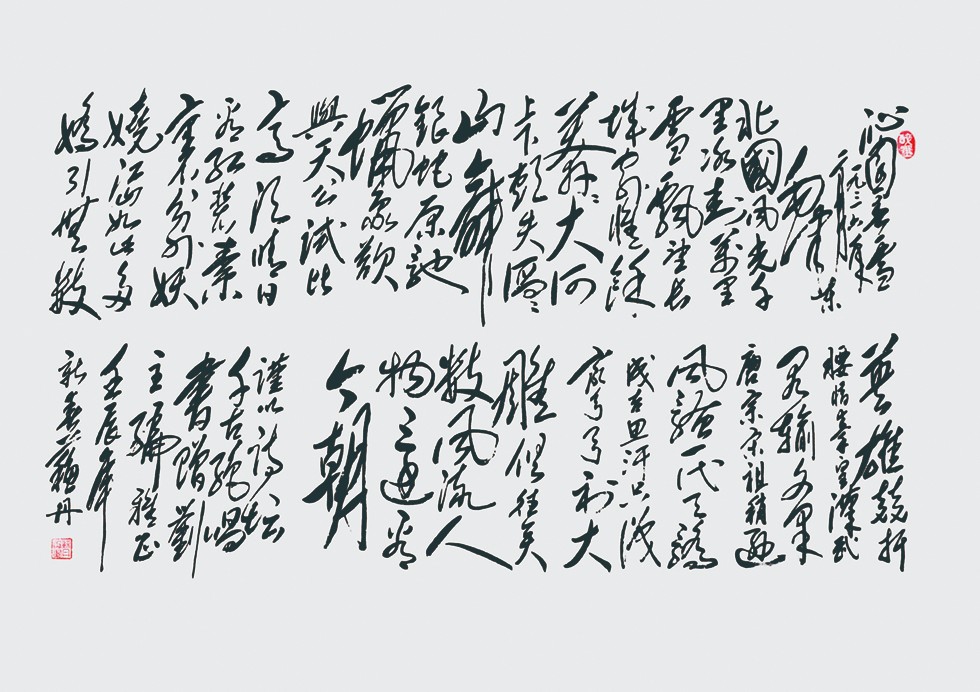 沁园春雪
一九三六年
毛泽东
北國风光千
里冰封萬里
雪飘望长
城内外惟馀
莽莽大河
上下顿失滔滔
山舞
银蛇原驰
蠟象欲
與天公试比
高须晴日
看红装素
裹分外妖
嬈江山如此多
嬌引無数
英雄競折
腰惜秦皇漢武
略输文采
唐宗宋祖稍逊
风骚一代天骄
成吉思汗只识
弯弓射大
雕俱往矣
数风流人
物还看
今朝
谨以诗坛
千古绝唱
書赠劉
主编雅正
壬辰年
新春蘇丹